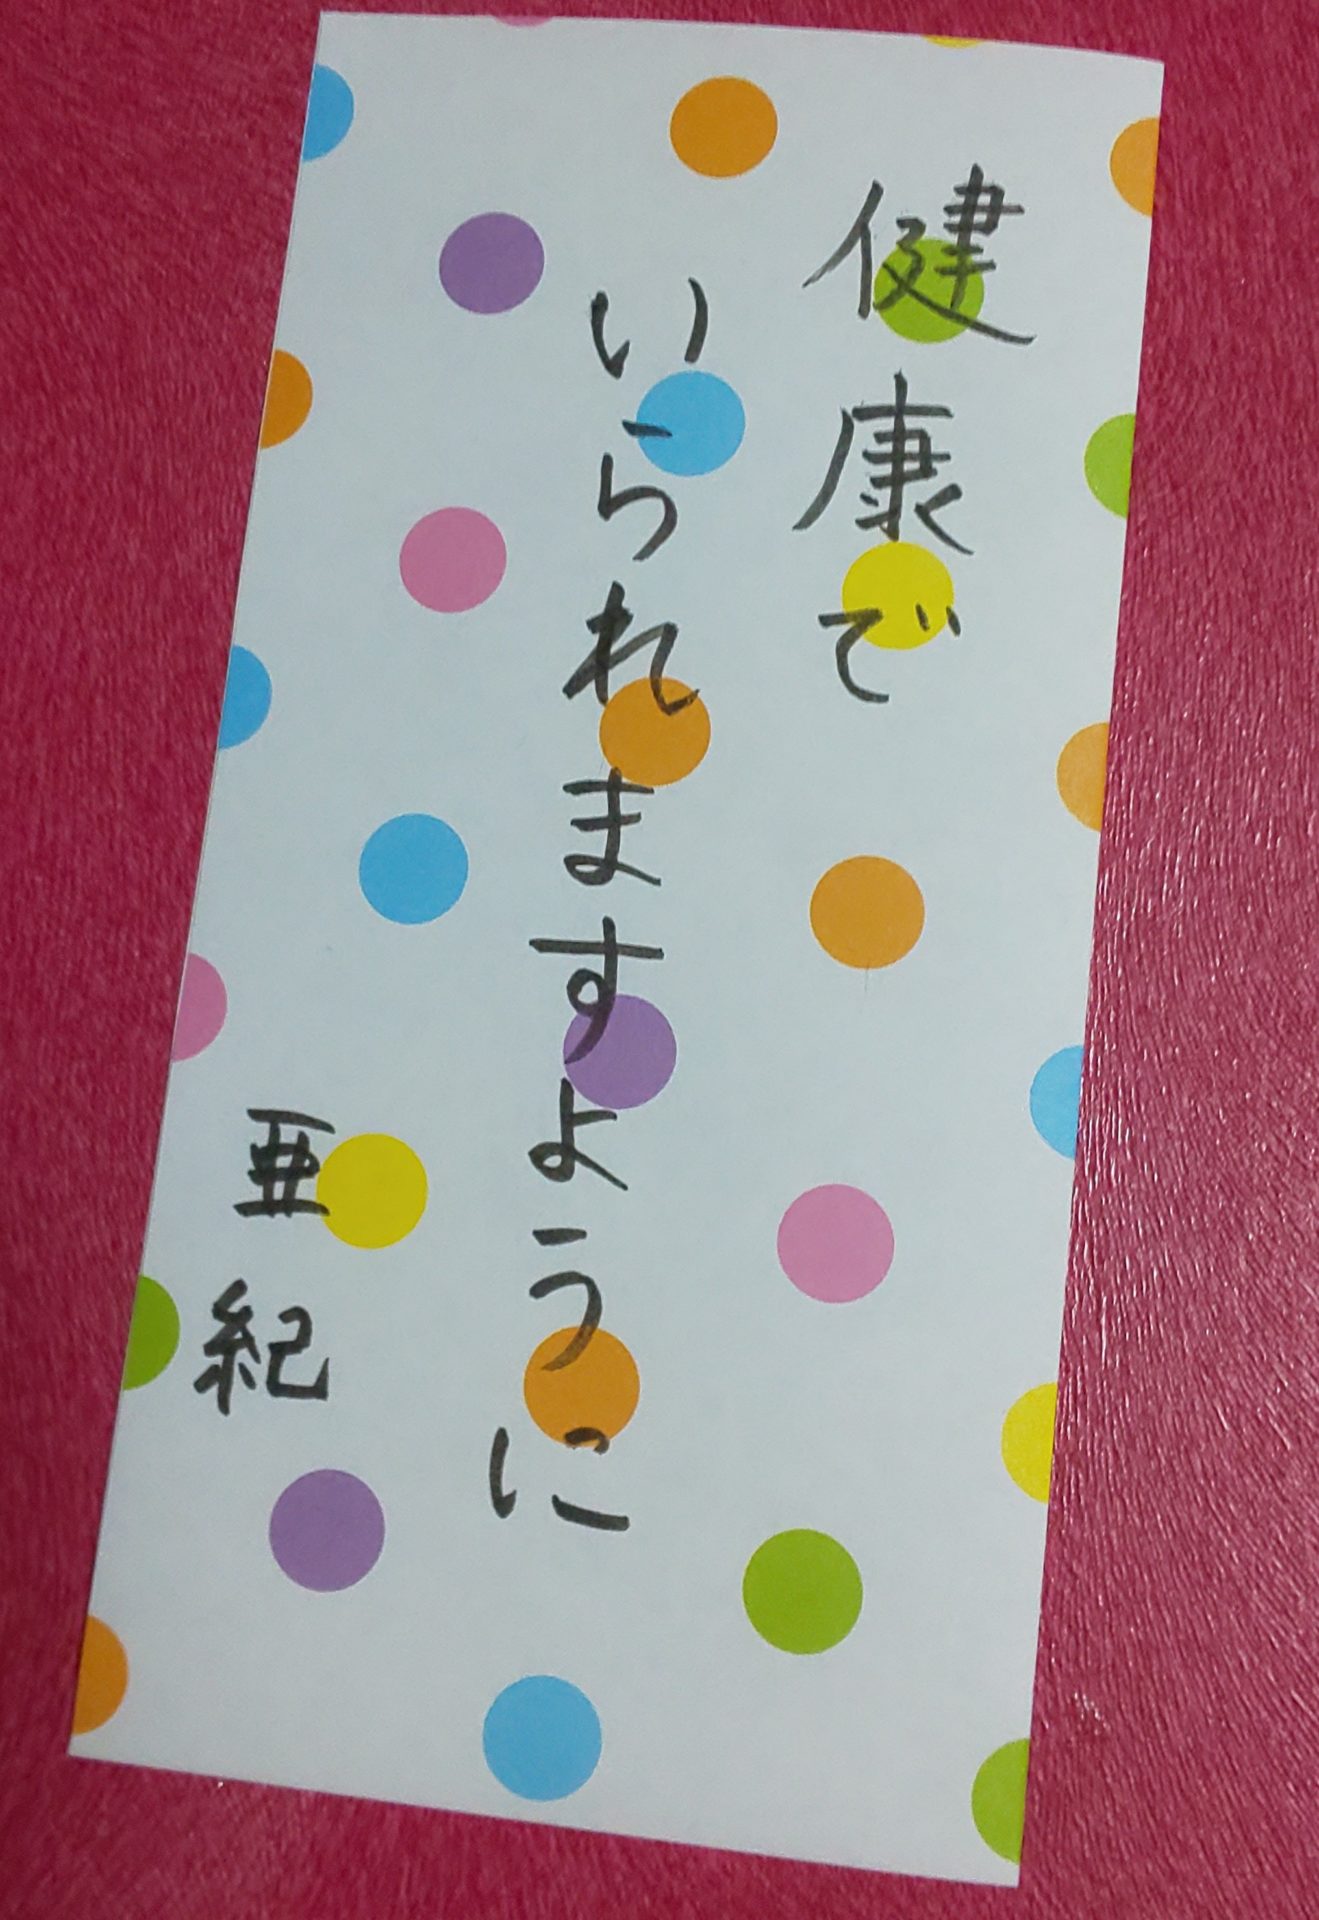 健康で
いられますように
亜紀